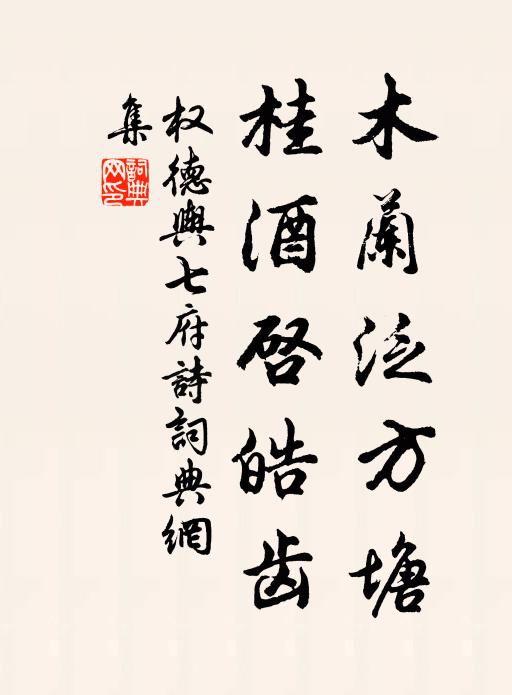 木蘭泛方塘
桂酒啓皓齿
权德輿七府詩詞典網
集
詞典網印